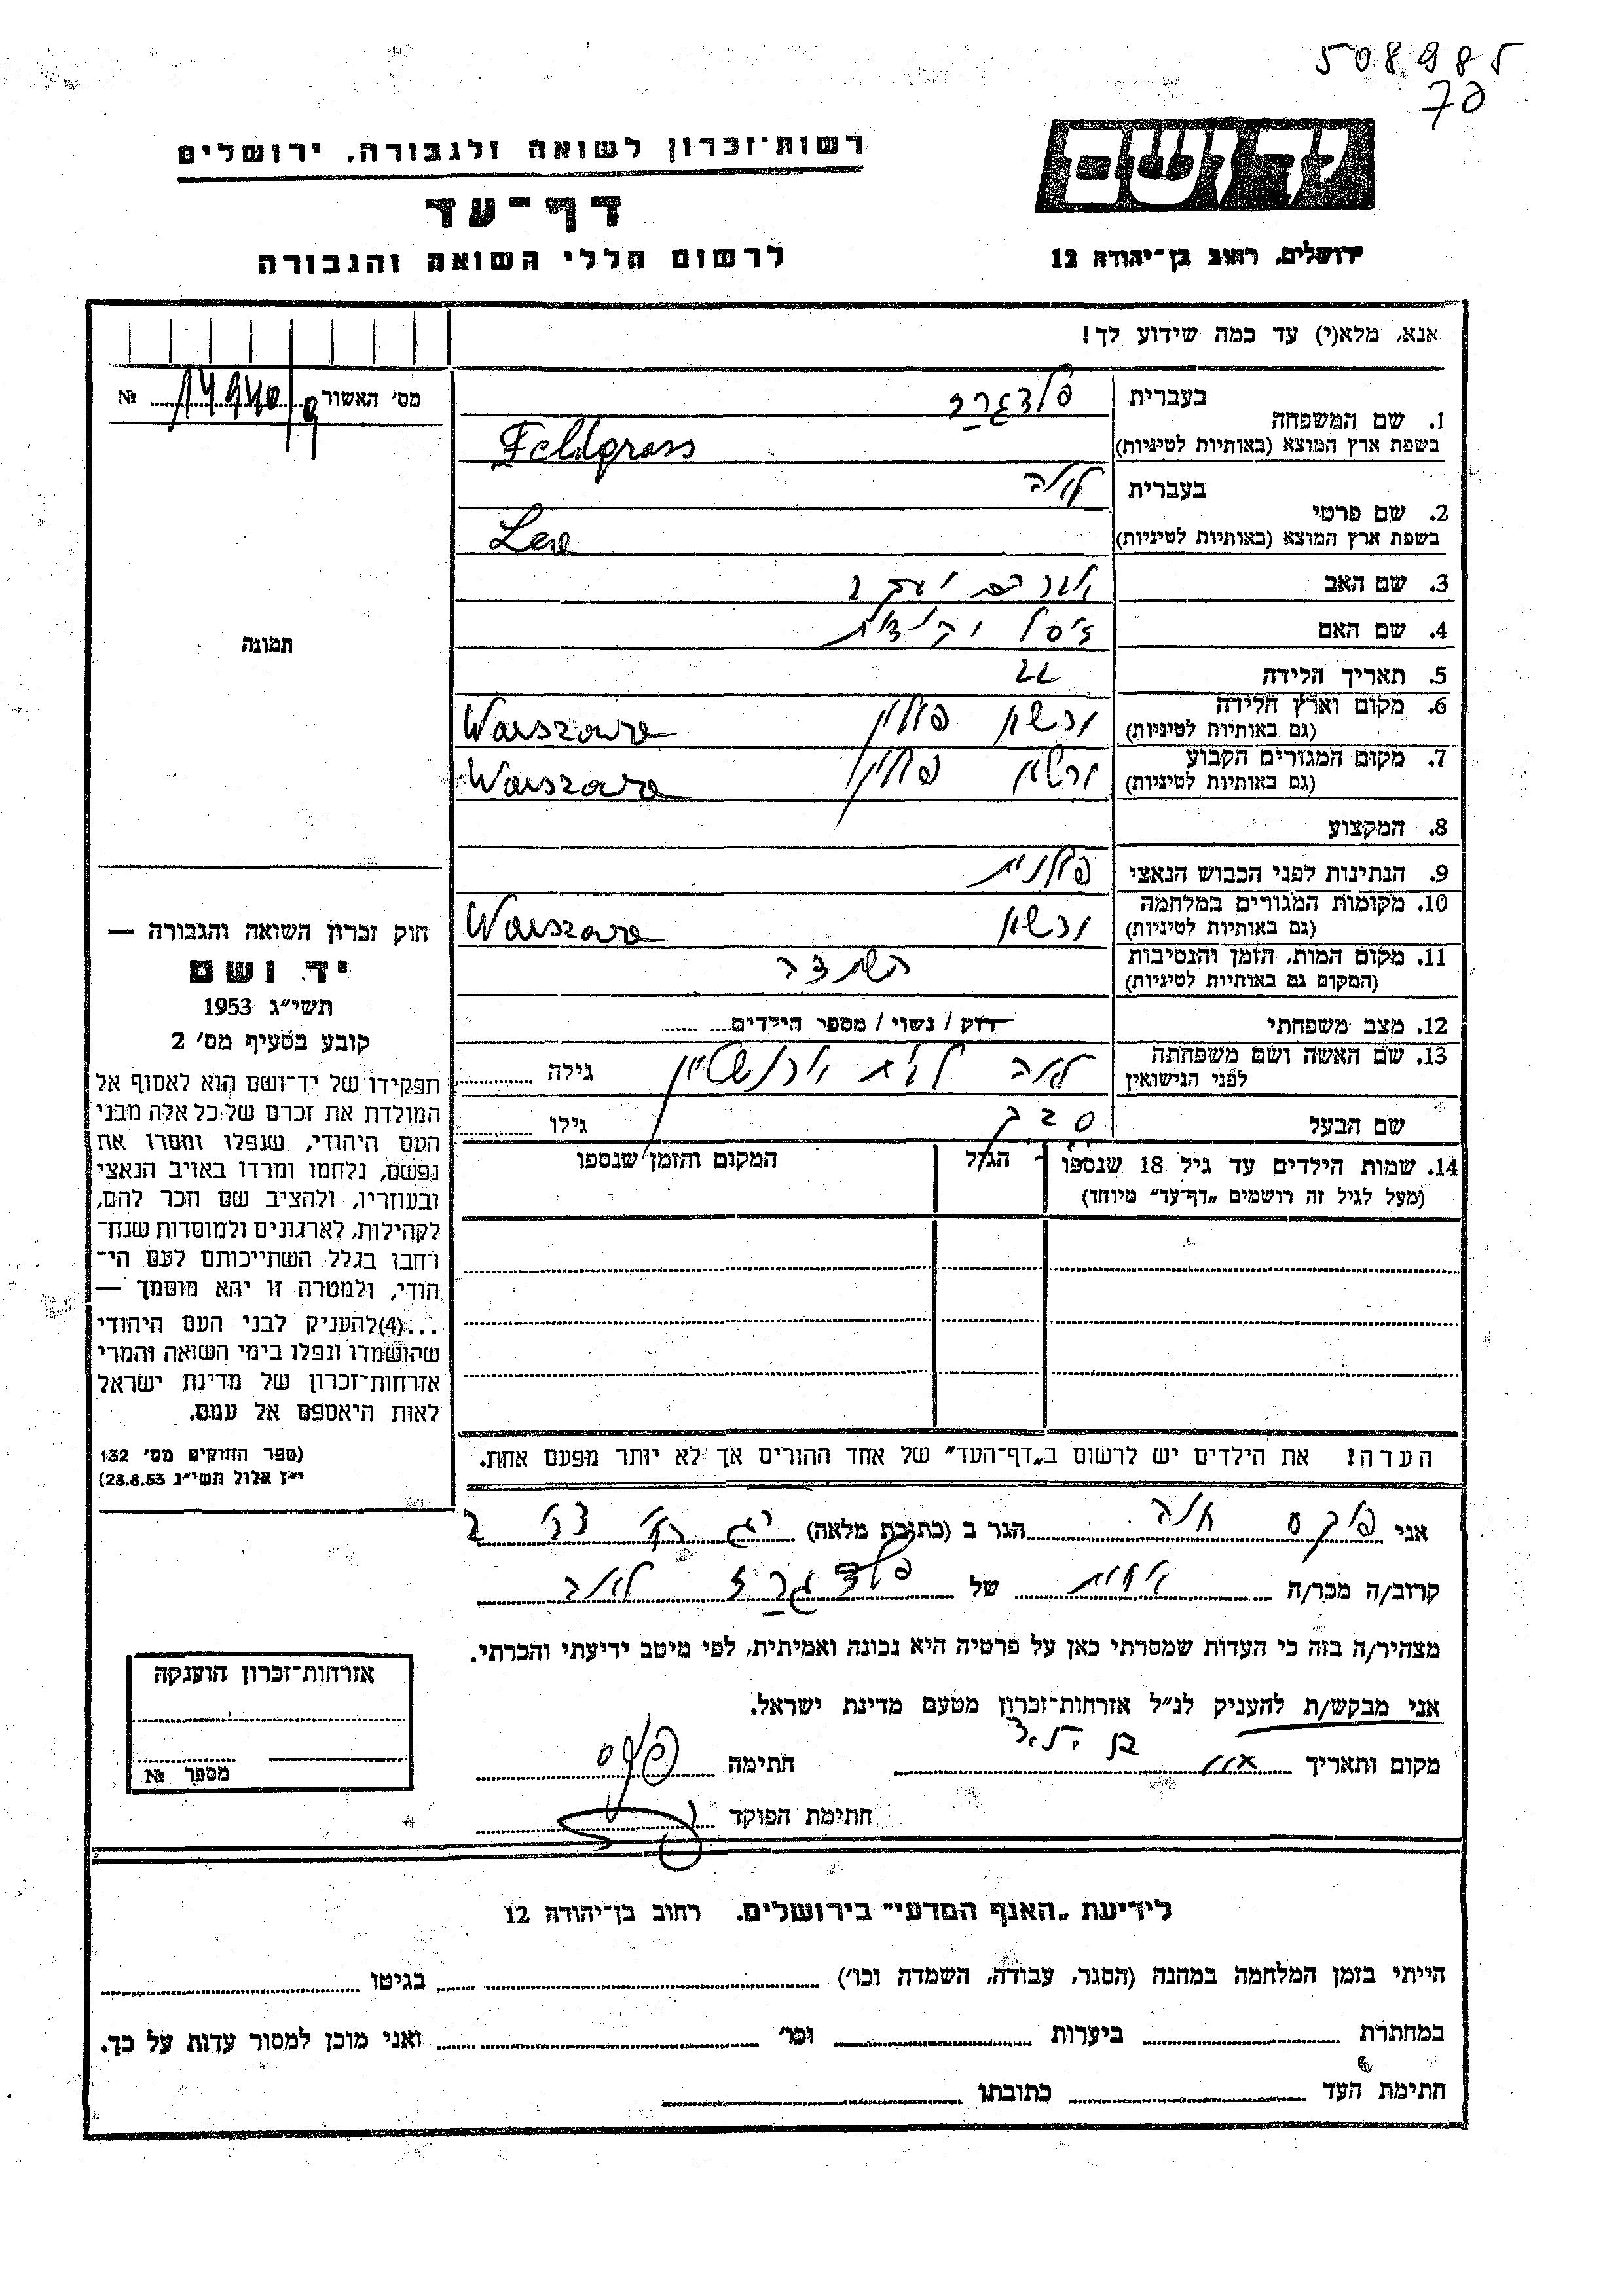 508985
70
יד ושם
רשות־זכרון לשואה ולגבורה, ירושלים
דף־עד
לרשום חללי השואה והגבורה
ירושלים, רחוב בן־יהודה 12
אנא, מלא(י) עד כמה שידוע לך!
מס׳ האשור № 
1. שם המשפחה
בעברית פלדגרז
בשפת ארץ המוצא (באותיות לטיניות) Feldgrass
2. שם פרטי
בעברית לאה
בשפת ארץ המוצא (באותיות לטיניות) Lea
3. שם האב אברהם יעקב
4. שם האם
5. תאריך הלידה 22
6. מקום וארץ הלידה
(גם באותיות לטיניות) ורשא פולין Warszawa
7. מקום המגורים הקבוע
(גם באותיות לטיניות) ורשא פולין Warszawa
8. המקצוע
9. הנתינות לפני הכבוש הנאצי פולנית
10. מקומות המגורים במלחמה
(גם באותיות לטיניות) ורשא Warszawa
11. מקום המות, הזמן והנסיבות
(המקום גם באותיות לטיניות) השמדה
12. מצב משפחתי רוק / נשוי / מספר הילדים
13. שם האשה ושם משפחתה
לפני הנישואין לאה לבית גילה
שם הבעל גילו
14. שמות הילדים עד גיל 18 שנספו הגיל המקום והזמן שנספו
(מעל לגיל זה רושמים „דף־עד״ מיוחד)
הערה! את הילדים יש לרשום ב„דף־העד״ של אחד ההורים אך לא יותר מפעם אחת.
תמונה
חוק זכרון השואה והגבורה —
יד ושם
תשי״ג 1953
קובע בסעיף מס׳ 2
תפקידו של יד־ושם הוא לאסוף אל
המולדת את זכרם של כל אלה מבני
העם היהודי, שנפלו ומסרו את
נפשם, נלחמו ומרדו באויב הנאצי
ובעוזריו, ולהציב שם וזכר להם,
לקהילות, לארגונים ולמוסדות שנח־
רחבו בגלל השתייכותם לעם הי־
הודי, ולמטרה זו יהא מוסמך —
...(4)להעניק לבני העם היהודי
שהושמדו ונפלו בימי השואה והמרי
אזרחות־זכרון של מדינת ישראל
לאות היאספם אל עמם.
(ספר החוקים מס׳ 132
י״ז אלול תשי״ג 28.8.53)
אני פוקס חוה הגר ב (כתובת מלאה)
קרוב/ה מכר/ה אחות של פלדגרז לאה
מצהיר/ה בזה כי העדות שמסרתי כאן על פרטיה היא נכונה ואמיתית, לפי מיטב ידיעתי והכרתי.
אני מבקש/ת להעניק לנ״ל אזרחות־זכרון מטעם מדינת ישראל.
מקום ותאריך חתימה פוקס
חתימת הפוקד
אזרחות־זכרון הוענקה
מספר №
לידיעת „האגף המדעי״ בירושלים. רחוב בן־יהודה 12
הייתי בזמן המלחמה במחנה (הסגר, עבודה, השמדה וכו׳) בגיטו
במחתרת ביערות וכו׳ ואני מוכן למסור עדות על כך.
חתימת העד כתובתו